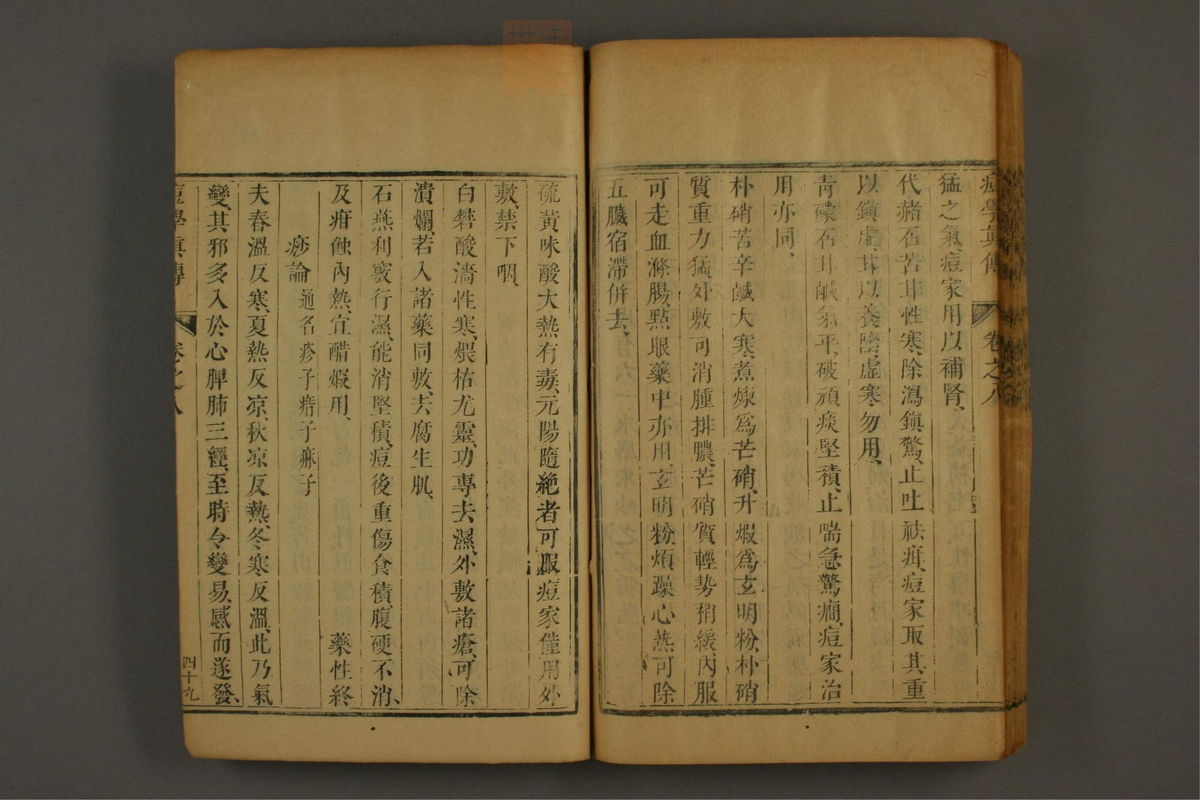 痘學真傳 卷之八
猛之氣、痘家用以補腎、
代赭石苦甘性寒、除瀉鎮驚止吐祛疳、痘家取其重
以鎮虛、甘以養陰、虛寒勿用、
青礞石甘鹹氣平、破頑痰堅積、止喘急驚癎、痘家治
用亦同、
朴硝苦辛鹹大寒、煮煉爲芒硝、升煆爲玄明粉、朴硝
質重力猛、外敷可消腫排膿、芒硝質輕勢稍緩、內服
可走血滌腸、點眼藥中亦用、玄明粉煩躁心熱可除
五臟宿滯併去、
硫黃味酸大熱有毒、元陽隨絕者可服、痘家僅用外
敷、禁下咽、
白礬酸濇性寒、煆枯尤靈、功專去濕、外敷諸瘡、可除
潰爛、若入諸藥同敷、去腐生肌、
石燕利竅行濕、能消堅積、痘後重傷食積腹硬不消、
及疳蝕內熱、宜醋煆用、 藥性終
痧論 通名疹子瘄子痳子
夫春溫反寒、夏熱反凉、秋凉反熱、冬寒反溫、此乃氣
變、其邪多入於心脾肺三經、至時令變易、感而遂發、
痘學真傳 卷之八 四十九